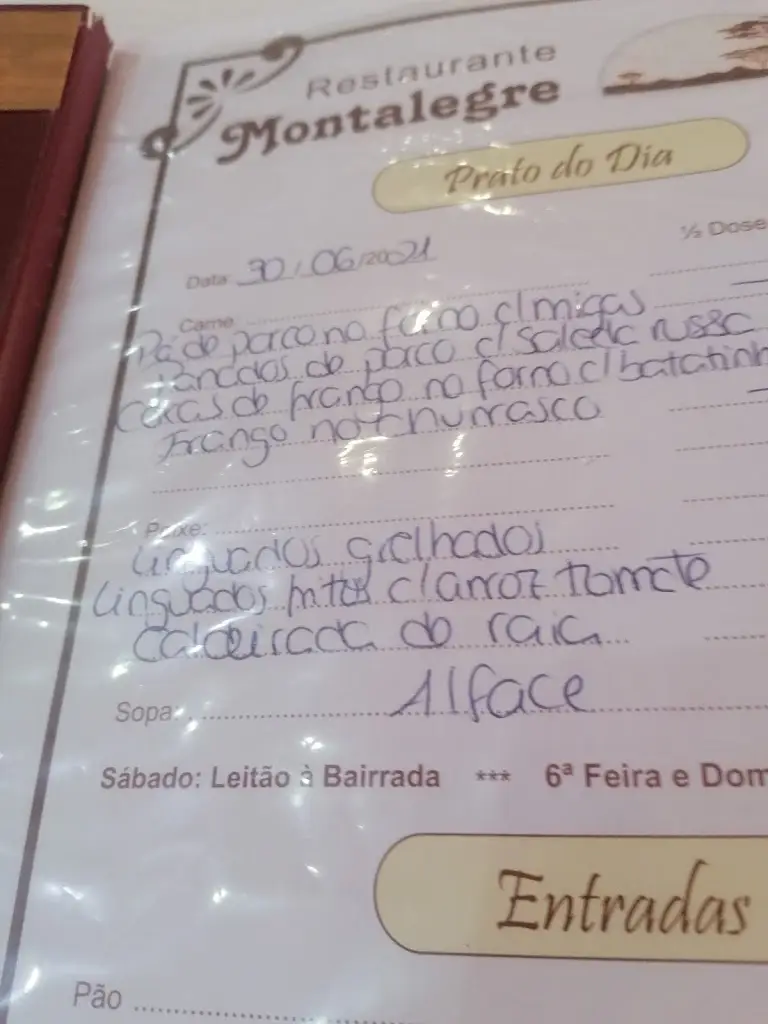 Restaurante
Montalegre
Prato do Dia
½ Dose
Data: 30/06/2021
Carne:
Pá de porco no forno c/ migas
Panados de porco c/ salada russa
Coxas de frango no forno c/ batatinh
Frango no churrasco
Peixe:
Linguados grelhados
Linguados fritos c/ arroz tomate
Caldeirada de raia
Sopa: Alface
Sábado: Leitão à Bairrada *** 6ª Feira e Dom
Entradas
Pão